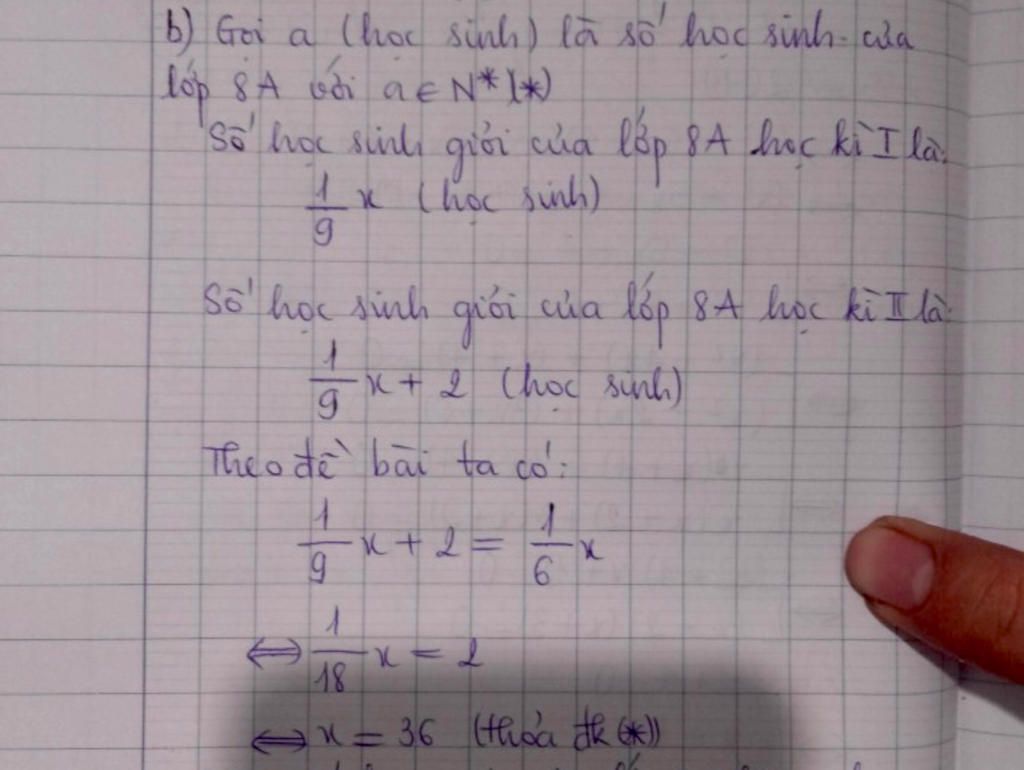 b) Gọi a (học sinh) là số học sinh của
lớp 8A với a ∈ N* (*)
Số học sinh giỏi của lớp 8A học kì I là:
1/9 x (học sinh)
Số học sinh giỏi của lớp 8A học kì II là:
1/9 x + 2 (học sinh)
Theo đề bài ta có:
1/9 x + 2 = 1/6 x
⇔ 1/18 x = 2
⇔ x = 36 (thỏa đk (*))